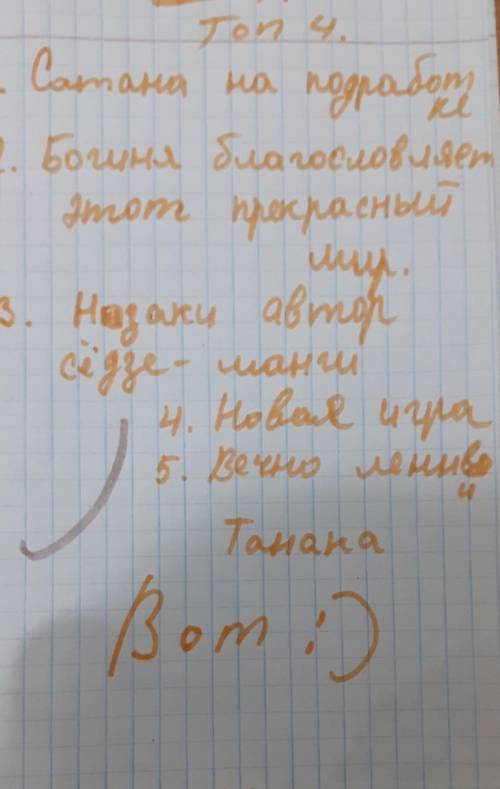 Топ 4.
. Сатана на подработ
ке
2. Богиня благословляет
этот прекрасный
мир.
3. Нозаки автор
сёдзе-манги
4. Новая игра
5. Вечно ленивы
й
Танана
Вот :)